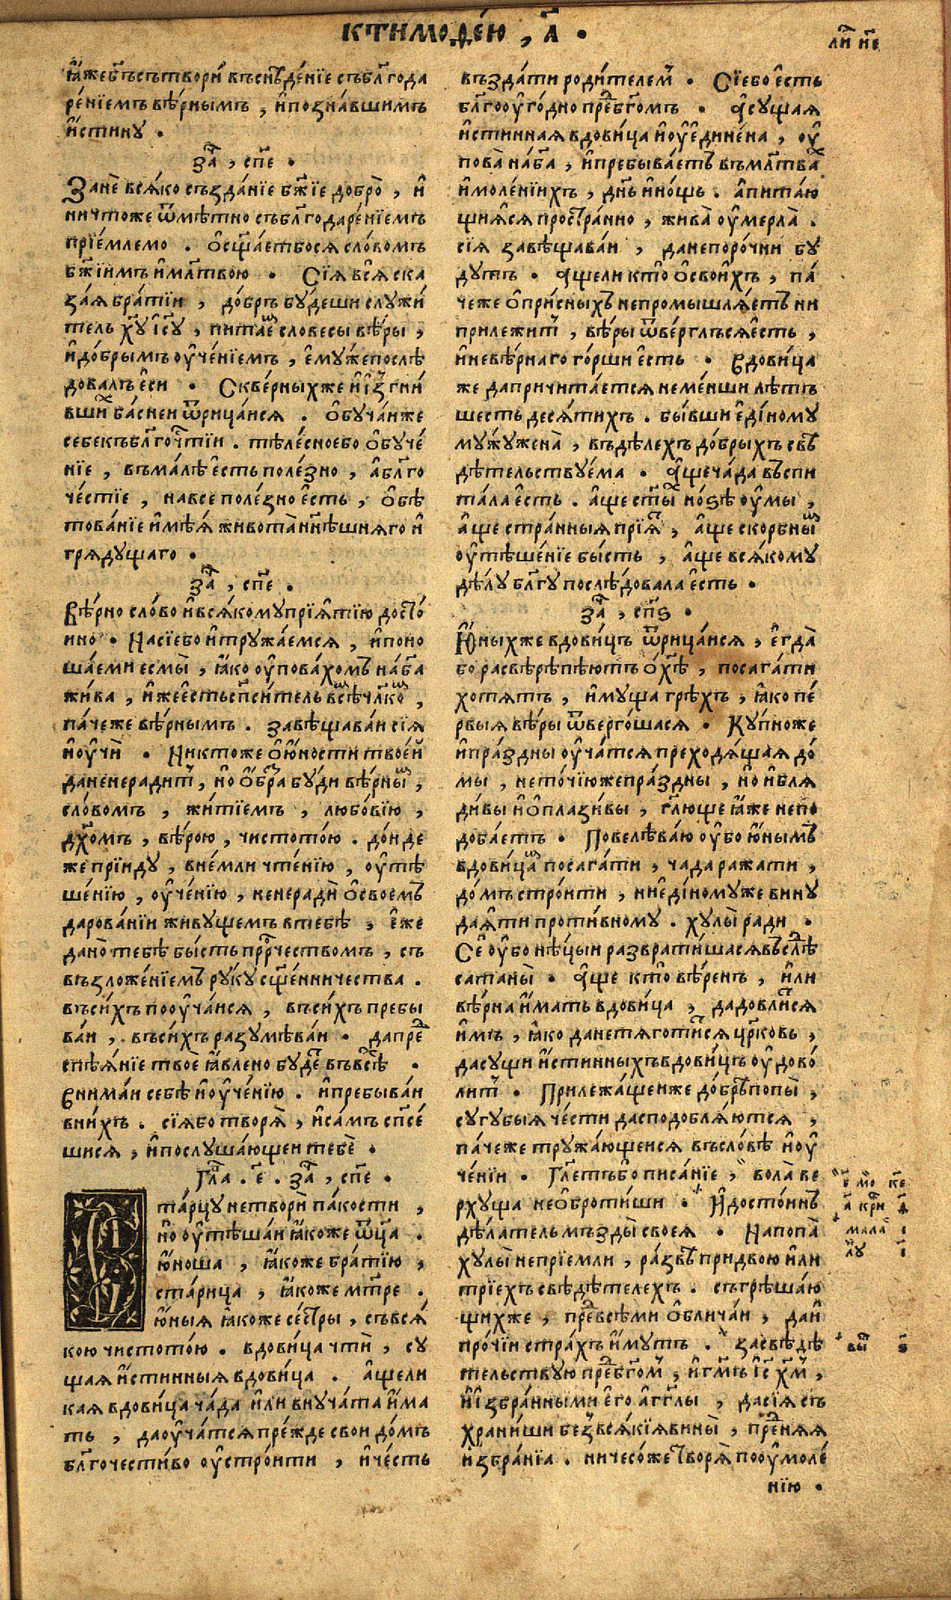 к тимоѳе́ю , а҃ •
ли́ н҃е
ꙗ҆́же бг҃ъ сътвори́ въ снѣде́нїе съ бл҃года
ре́нїемъ вѣ́рнымъ , и҆ позна́вшимъ
и҆́стину .
за҃ , сп҃е .
Занѐ вся́ко създа́нїе бж҃їе добро̀ , и҆
ничто́же ѿмѣ́тно съ бл҃годаре́нїемъ
прїе́млемо . ѡ҆сщ҃а́етбося сло́вомъ
бж҃їимъ и҆ мл҃твою • Сїя̀ вся̀ ска
за́я бра́тїи , до́брѣ бу́деши служи́
тель хв҃у і҆с҃у , пита́е словесы̀ вѣ́ры ,
и҆ до́брымъ оу҆че́нїемъ , е҆му́же послѣ́
довалъ е҆сѝ • Скве́рныхже и҆ ізгни́
вши ба́сней ѿрица́йся . ѻ҆буча́йже
себе къ бл҃гочтїи . тѣле́сноебо ѻ҆буче́
нїе , въма́лѣ е҆сть поле́зно , а҆ бл҃го
че́стїе , на все поле́зно е҆сть , ѻ҆бѣ
това́нїе и҆мѣ́я живота̀ нн҃ѣшняго и҆
гряду́щаго •
за҃ , сп҃е .
Вѣ́рно сло́во и҆ вся́кому прїя́тїю досто́
йно • На сїебо и҆ тружа́емся , и҆ поно
ша́еми есмы̀ , ꙗ҆́ко оу҆пова́хомъ на бг҃а
жи́ва , и҆́же е҆сть сп҃си́тель всѣ́ чл҃ко ,
па́чеже вѣ́рнымъ . завѣщава́й сїя̀
и҆ оу҆чѝ • Никто́же ѻ҆ ю҆́ности твое́й
да не неради́т , но ѻ҆́бра бу́ди вѣ́рны ,
сло́вомъ , житїе́мъ , любо́вїю ,
дх҃омъ , вѣ́рою , чистото́ю . до́нде
же прїиду̀ , вне́мли чте́нїю , оу҆тѣ
ше́нїю , оу҆че́нїю , не неради̇̀ ѻ҆ свое́мъ
дарова́нїи живу́щемъ в тебѣ̀ , е҆́же
дано̀ тебѣ бы́сть прⷪ҇рчествомъ , съ
възложе́нїемъ ру́ку сщ҃е́нничества .
въ си́хъ пооуча́йся , въ си́хъ пребы
ва́й , въ си́хъ разумѣва́й • да пре
спѣ́янїе твоѐ ꙗ҆влено бу́де въ всѣ •
Внима́й себѣ̀ и҆ оу҆че́нїю . и҆ пребыва́й
в ни́хъ . сїя́бо творя̀ , и҆ са́мъ сп҃се́
шися , и҆ послу́шающеи тебѐ •
гла . е҃ . за҃ , сп҃е •
Старцу не твори̇̀ па́кости ,
но оу҆тѣша́й ꙗ҆́коже ѿц҃а .
ю҆́ноша , ꙗ҆́коже бра́тїю ,
ста́рица , ꙗ҆́коже мт҃ре .
ю҆́ныя ꙗ҆́коже се́стры , съ вся́
кою чистото́ю . вдови́ца чтѝ , су
щая и҆́стинныя вдови́ца . а҆́щели
кая вдови́ца ча́да и҆ли вну́чата и҆́ма
ть , да оу҆ча́тся пре́жде сво́й до́мъ
бл҃гочести́во оу҆стро́ити , и҆ че́сть
възда́ти роди́телем • Сїебо е҆сть
бл҃го о оу҆го́дно пре́ бг҃омъ . А сущая
и҆́стинная вдови́ца и҆ оу҆едине́на , оу҆
пова̀ на бг҃а , и҆ пребыва́етъ въ мл҃тва
и҆ моле́нїихъ , дн҃ь и҆ но́щь . а҆ пита́ю
щияся простра́нно , жива̀ оу҆мерла̀ .
сїя завѣщава́й , да непоро́чни бу́
дутъ . Ащели кто̀ ѻ҆ свои́хъ , па́
че же ѻ҆ при́сныхъ непромышля́етъ ни
прилежи́т , вѣ́ры ѿве́рглъся е҆сть ,
и҆ невѣ́рнаго го́рши е҆сть • Вдови́ца
же да причита́ется неме́нши лѣ́тъ
шесть деся́тихъ . бы́вши е҆ди́ному
му́жу жена̀ , въ дѣ́лехъ до́брыхъ свѣ
дѣ́тельствуема • Аще ча́да въспи
та́ла е҆сть . а҆́ще ст҃ы но́зѣ оу҆мы̀ ,
а҆́ще стра́нныя прїя̀ , а҆́ще ско́рбны
оу҆тѣше́нїе бы́сть , а҆́ще вся́кому
дѣ́лу бл҃гу послѣ́довала е҆сть •
за҃ , сп҃ѕ •
Ю҆́ныхже вдови́цъ ѿрица́йся , е҆гда̀
бо расвѣрѣпѣ́ютъ ѻ҆ хѣ̀ , посага́ти
хотя́тъ , и҆му́ща грѣ́хъ , ꙗ҆́ко пе́
рвыя вѣ́ры ѿверго́шася • Ку́пноже
и҆ пра́здны оу҆ча́тся преходя́щая до́
мы , нето́чїюже пра́здны , но и҆ бля
ди́вы и҆ ѻ҆плази́вы , гл҃ю́ще ꙗ҆́же не по
доба́етъ • Повелѣва́ю оу҆́бо ю҆́нымъ
вдови́ца посага́ти , ча́да ража́ти ,
до́мъ стро́ити , ни е҆ди́ному же вину
дая́ти проти́вному . хулы̀ ради •
Се́ оу҆́бо нѣ́цыи разврати́шася въслѣ
сатаны̀ • Аще кто̀ вѣ́ренъ , и҆ли
вѣ́рна и҆́мать вдови́ца , да довли́тся
и҆́мъ , ꙗ҆́ко да не тяготи́тся цр҃ковь ,
да сущи и҆́стинныхъ вдови́цъ оу҆дово́
лит • Прилежа́щеиже до́брѣ попы̀ ,
сугу́быя че́сти да сподобля́ются ,
па́чеже тружа́ющеися въ сло́вѣ и҆ оу҆
че́нїи • Гл҃етъ бо писа́нїе , вола̀ ве
рху́ща не ѻ҆броти́ши • И҆ досто́инъ
дѣ́латель мъзды̀ своея̀ • На попа̀
хулы̀ непрїе́мли , ра́звѣ придвою̀ и҆ли
трїе́хъ свѣдѣ́телехъ . съгрѣша́ю
щихже , пре́ всѣ́ми ѻ҆блича́й , да и҆
про́чїи стра́хъ и҆́мутъ . Засвѣдѣ́
тельствую пре́ бг҃ом , и҆ гм҃ъ і҆с҃ х҃м ,
и҆ и҆збра́нными е҆го̀ а҆́гг҃лы , да сїя съ
храни́ши без вся́кїя вины̀ , пре́няя
и҆збра́нїа . ничесо́же творя̀ по оу҆моле́
нїю •
е҃ мо ке
а҃ кри ѳ҃
мала і҃
лу і҃
вы ѕ҃